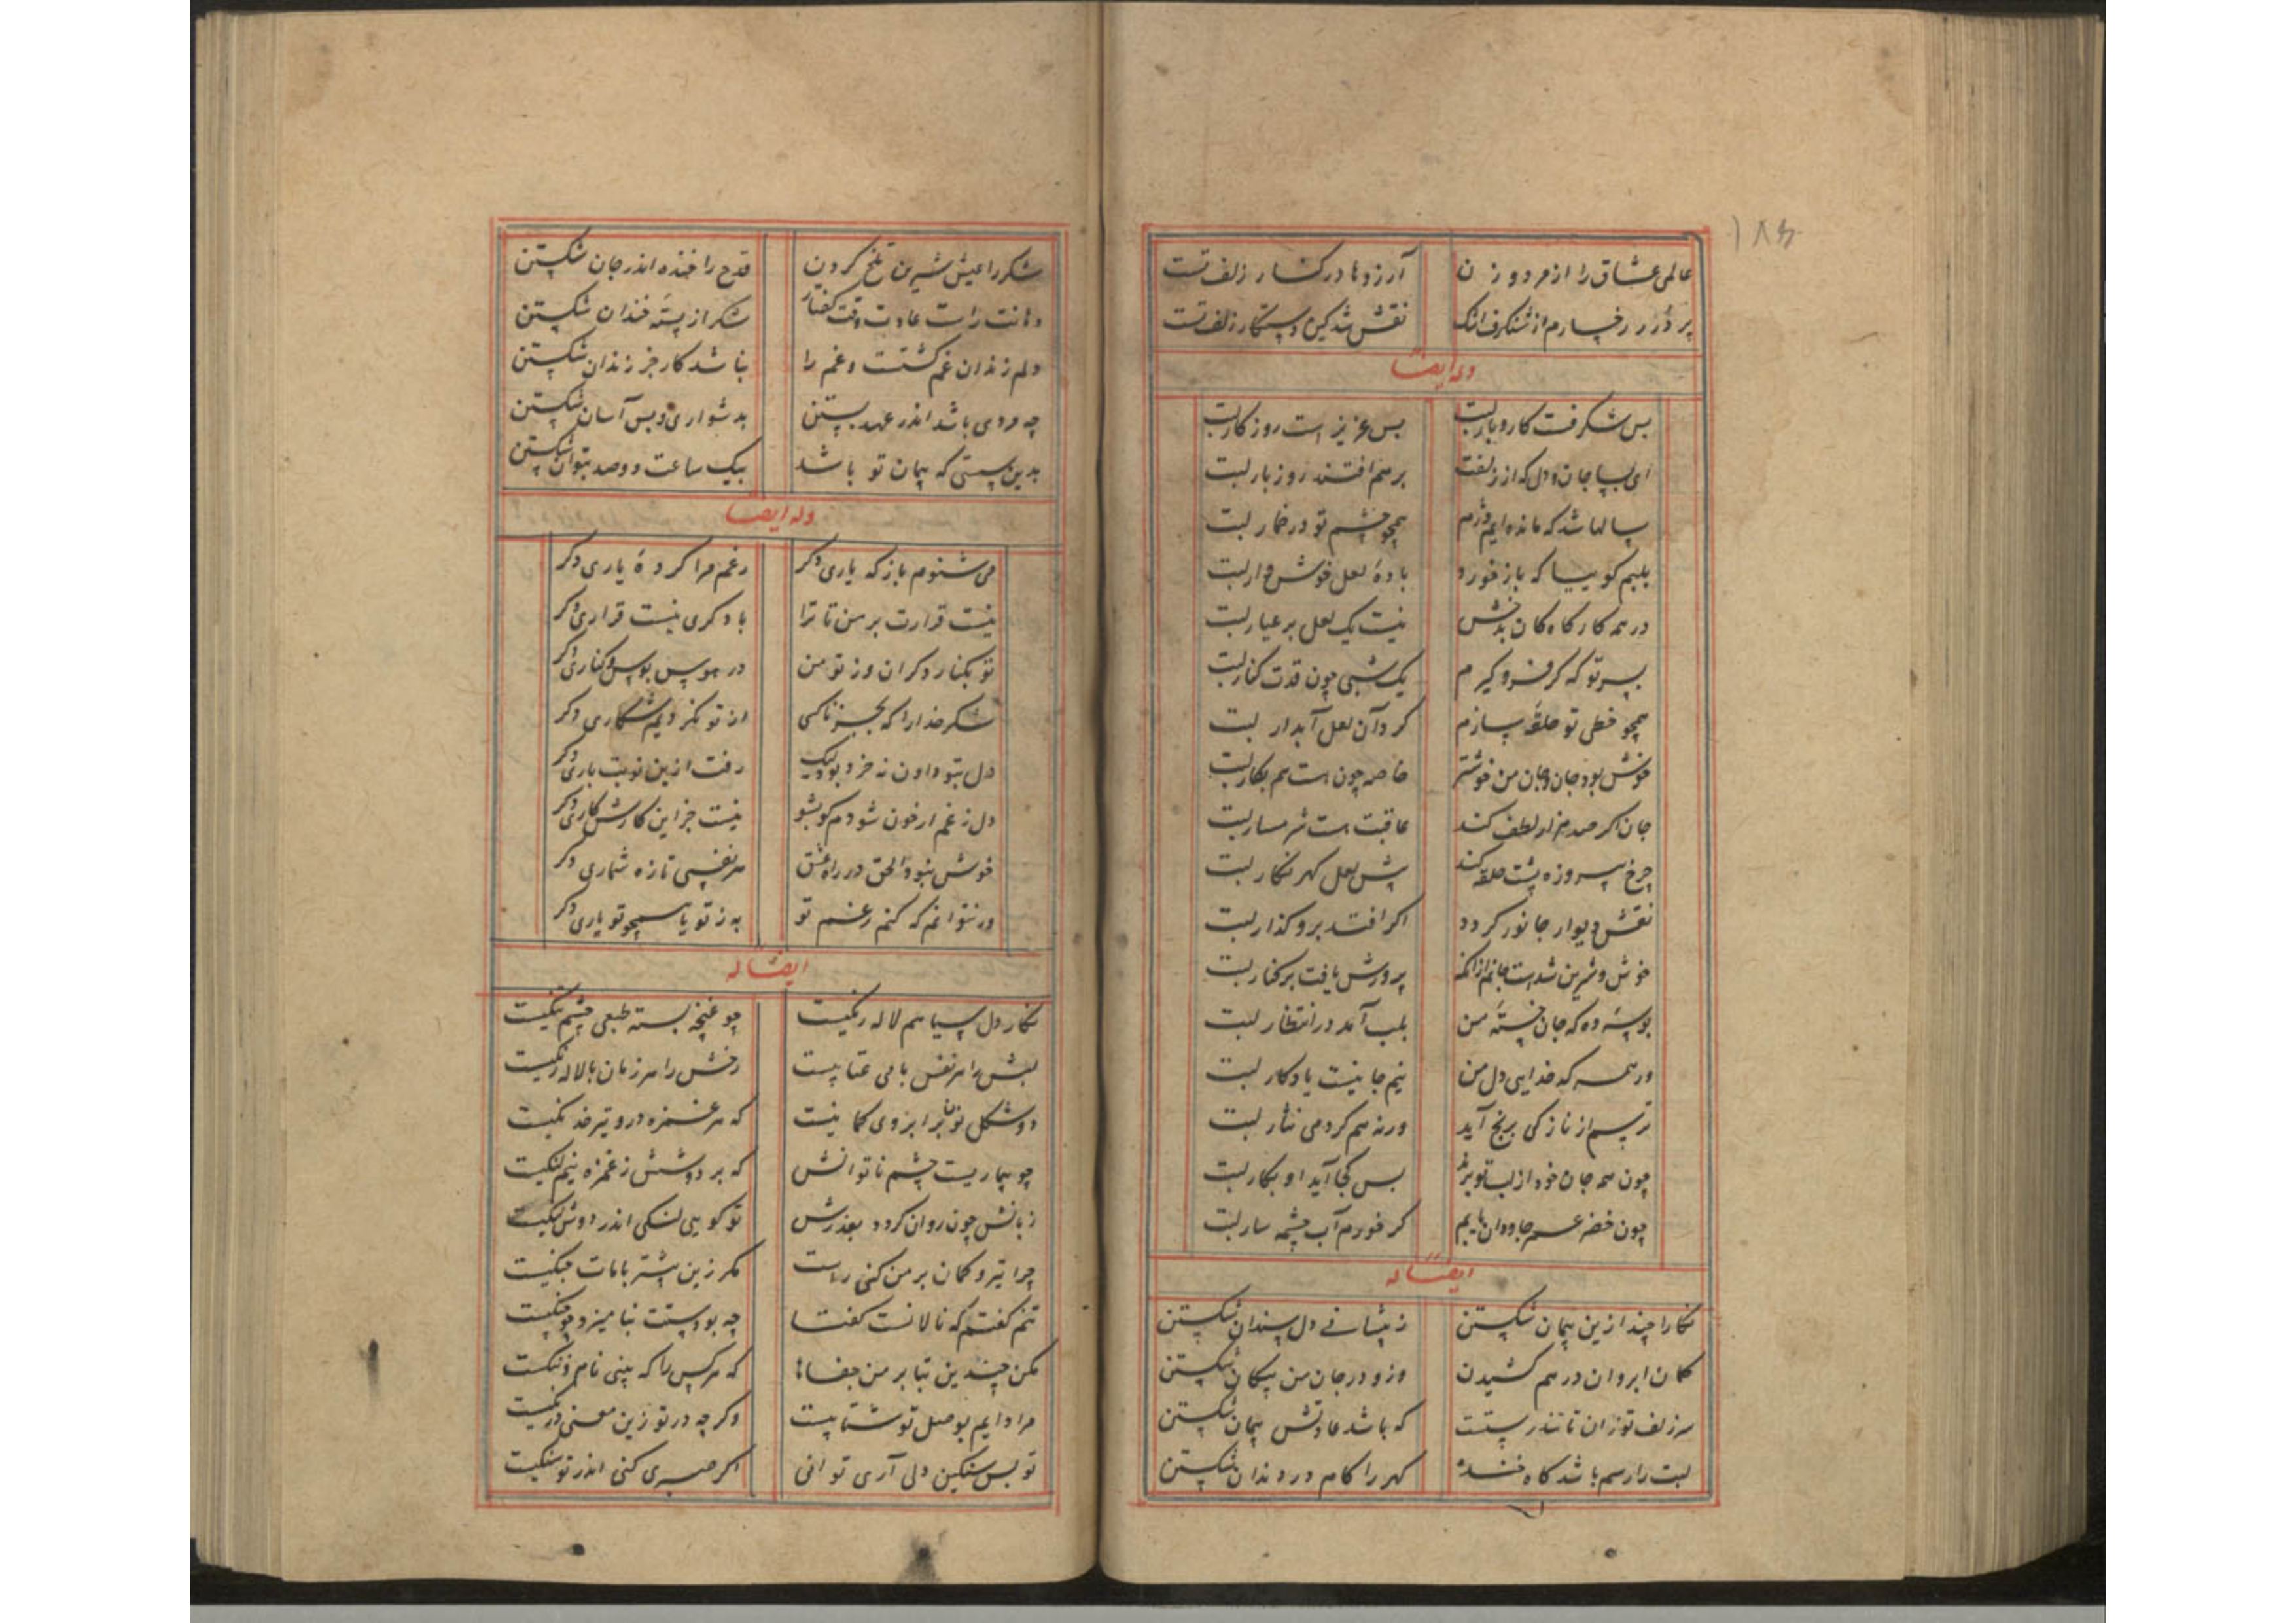 ۱۸۴
عالمی عشاق را از مرد و زن آرزوها در کنار زلف تست
بر در رخسارم از شنکرف اشک نقش شد کین دستکار زلف تست
وله ایضا
بس شکرفت کار و بار لبت بس عزیز است روزکار لبت
ای بسا جان و دل که از زلفت بر هم افتند روز بار لبت
سالها شد که مانده ایم دژم همچو چشم تو در خمار لبت
بلبم کو بیا که باز خورد بادهٔ لعل خوش وار لبت
در همه کارگاه کان بدخش نیست یک لعل بر عیار لبت
بسر تو که کر فرو کیرم یک شبی چون قدت کنار لبت
همچو خطی تو حلقه سازم کرد آن لعل آبدار لبت
خوش بود جان و جان من خوشتر خاصه چون هست هم بکار لبت
جان اکر صد هزار لطف کند عاقبت هست شرمسار لبت
چرخ پیروزه پشت حلقه کند پیش لعل کهر نکار لبت
نقش دیوار جانور کردد اکر افتد برو کذار لبت
خوش و شیرین شدست جانم از آنکه پرورش یافت بر کنار لبت
بوسه ده که جان خستهٔ من بلب آمد در انتظار لبت
ورنه که خدایی دل من نیم جانیست یادکار لبت
ترسم از نازکی برنج آید ورنه هم کردمی نثار لبت
چون همه جان خود از لب تو برند بس کجا آید او بکار لبت
چون خضر عمر جاودان یابم کر خورم آب چشمه سار لبت
ایضا له
نکارا چند ازین پیمان شکستن ز پیشانی دل سندان شکستن
کمان ابروان در هم کشیدن وزو در جان من پیکان شکستن
سر زلف تو زان تا تندرستست که باشد عادتش پیمان شکستن
لبت را رسم باشد کاه خنده کهر را کام در دندان شکستن
شکر را عیش شیرین تلخ کردن قدح را خنده اندر جان شکستن
دهانت راست عادت وقت کفتار شکر از پستهٔ خندان شکستن
دلم زندان غم کشتست و غم را نباشد کار جز زندان شکستن
چه مردی باشد اندر عهد بستن بدشواری و بس آسان شکستن
بدین سستی که پیمان تو باشد بیک ساعت دوصد بتوان شکستن
وله ایضا
می شنوم باز که یاری دکر رغم مرا کردهٔ یاری دکر
نیست قرارت بر من تا ترا با دکری نیست قراری دکر
تو بکنار دکران وز تو من در هوس بوس و کناری دکر
شکر خدا را که بجز ناکسی از تو نکردیم شکاری دکر
دل بتو دادن نه خرد بود لیک رفت ازین نوبت باری دکر
دل ز غم ار خون شودم کو بشو نیست جز این کارش کاری دکر
خوش نبود الحق در راه عشق هر نفسی تازه شماری دکر
ور نتوانم که کنم رغم تو به ز تو یا همچو تو یاری دکر
ایضا له
نکار دل سیاهم لاله رنکیست چو غنچه بسته طبعی چشم تنکیست
لبش را هر نفس با می عتابیست رخش را هر زمان با لاله رنکیست
دو شکل نون بر ابروی کمانیست که هر غمزه درو تیر خدنکیست
چو بیماریست چشم ناتوانش که بر دوشش ز غمزه نیم لنکیست
زبانش چون روان کردد بعذرش تو کویی لنکی اندر دوش لنکیست
چرا تیر و کمان بر من کنی راست مکر زین بیشتر با مات جنکیست
تنم کفتم که نالانست کفتا چه بودستت نیامیزد چو چنکیست
مکن چندین بتا بر من جفاها که هر کس را که بینی نام و ننکیست
مرا دایم بوصل تو شتابیست وکر چه در تو زین معنی درنکیست
تو بس سنکین دلی آری توانی اکر صبری کنی اندر تو سنکیست